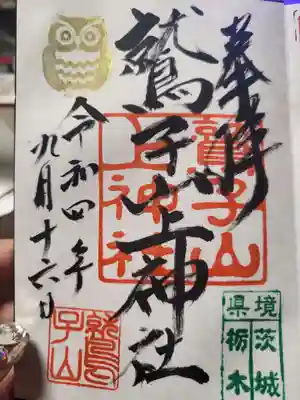 奉拝
鷲子山上神社
令和四年
九月十六日
鷲子山
上神社
境茨城
県栃木
鷲
子山